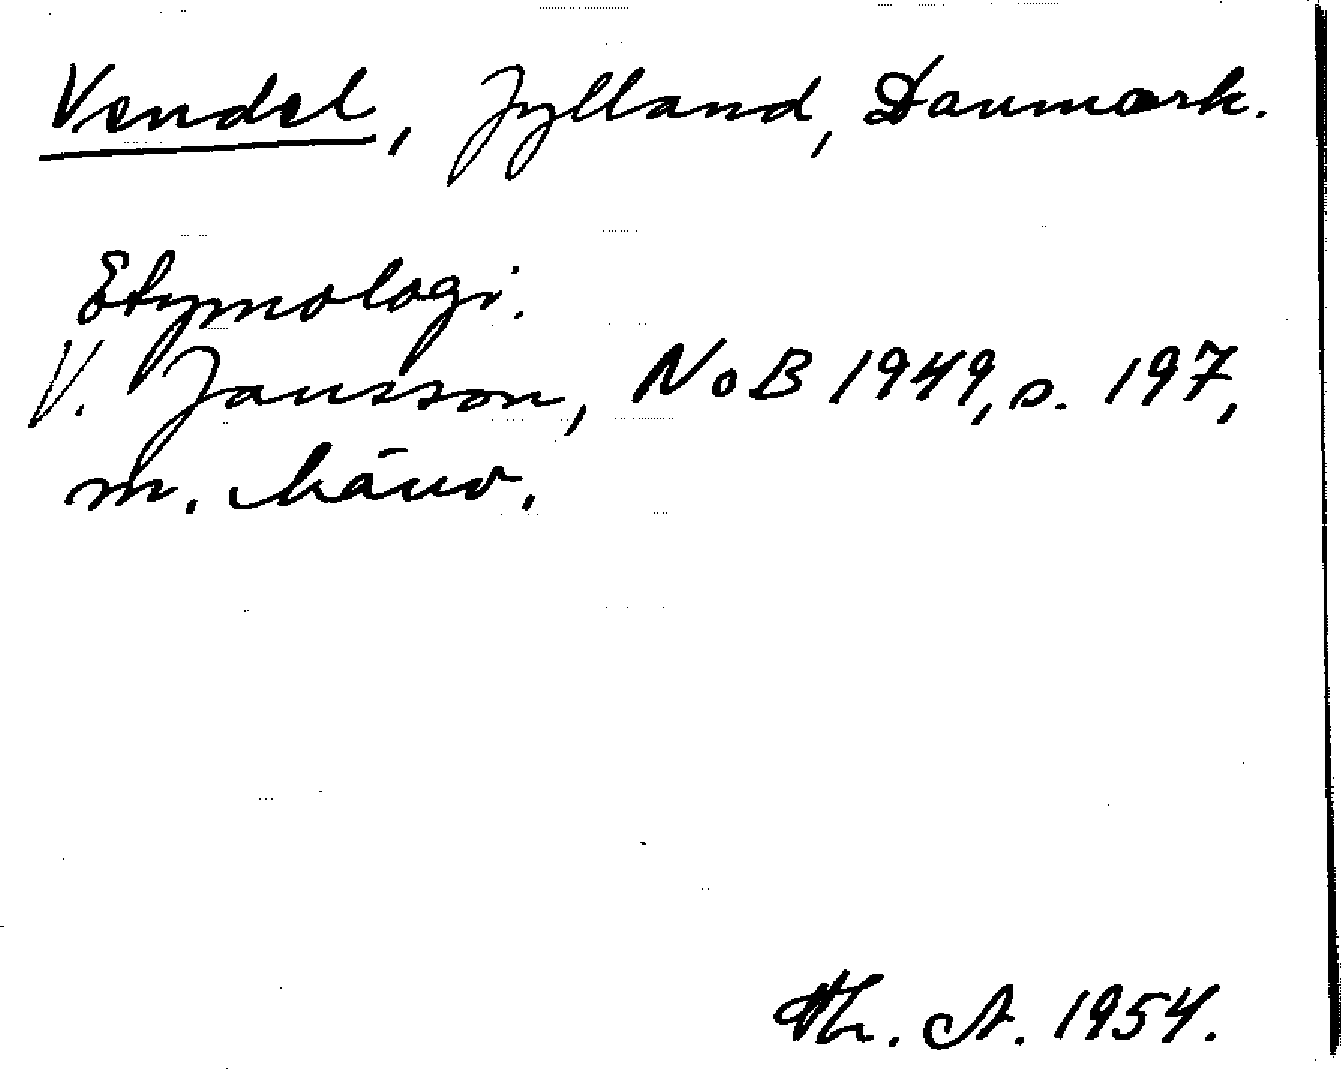 Vendel, Jylland, Danmark.
Etymologi.
V. Jansson, NoB 1949, s. 197,
m. hänv.
Th. A. 1954.